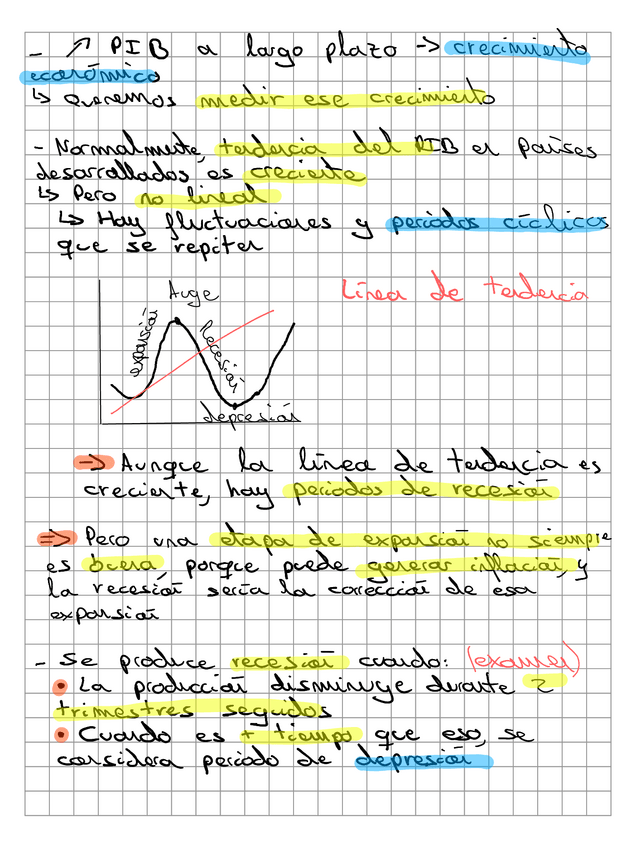 - ↗ PIB a largo plazo -> crecimiento
económico
↳ Queremos medir ese crecimiento
- Normalmente, tendencia del PIB en países
desarrollados es creciente
↳ Pero no lineal
↳ Hay fluctuaciones y periodos cíclicos
que se repiten
Auge
Línea de tendencia
expansión
Recesión
depresión
=> Aunque la línea de tendencia es
creciente, hay periodos de recesión
=> Pero una etapa de expansión no siempre
es buena, porque puede generar inflación, y
la recesión sería la corrección de esa
expansión
- Se produce recesión cuando: (examen)
• La producción disminuye durante 2
trimestres seguidos
• Cuando es + tiempo que eso, se
considera periodo de depresión